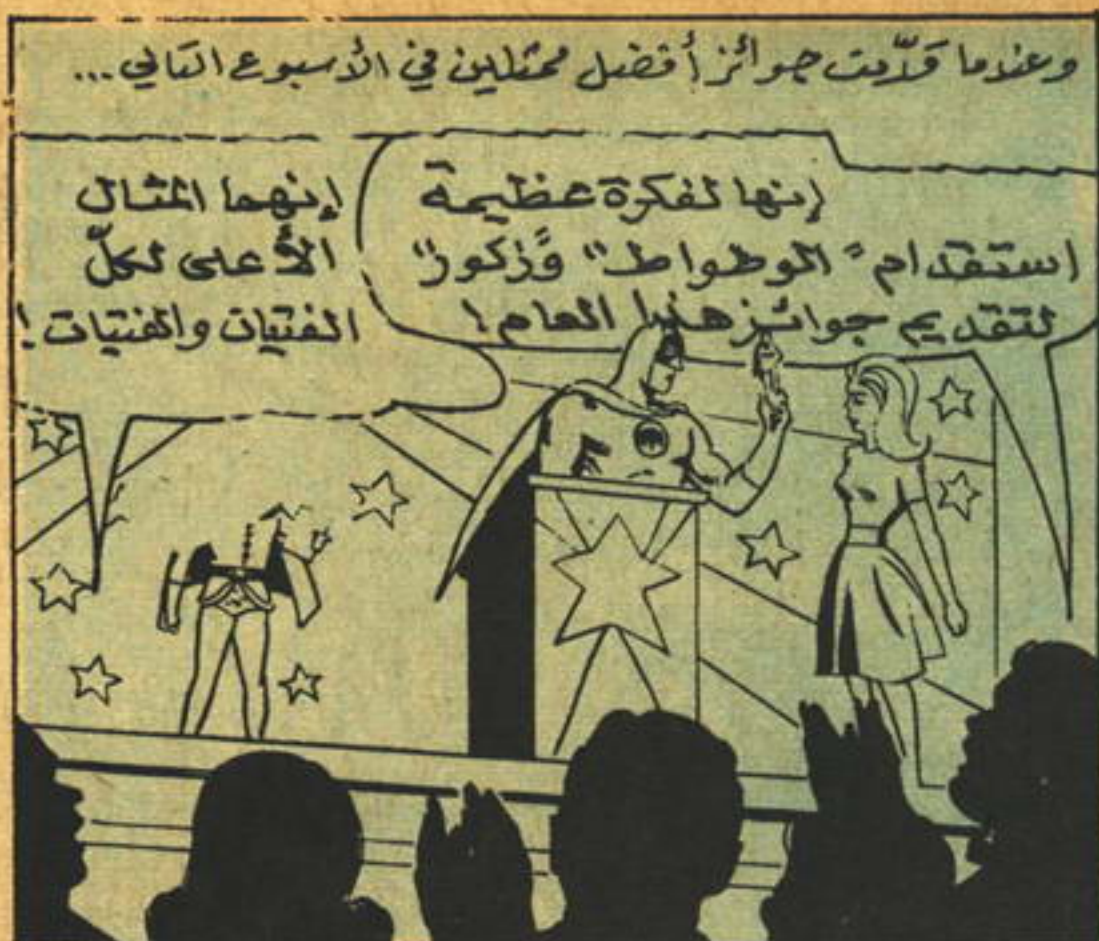 وعندما قدّمت جوائز أفضل ممثلين في الأسبوع التالي...
إنها لفكرة عظيمة
استقدام "الوطواط" وَزكور"
لتقديم جوائز هذا العام!
إنهما المثال
الأعلى لكلّ
الفتيان والفتيات!